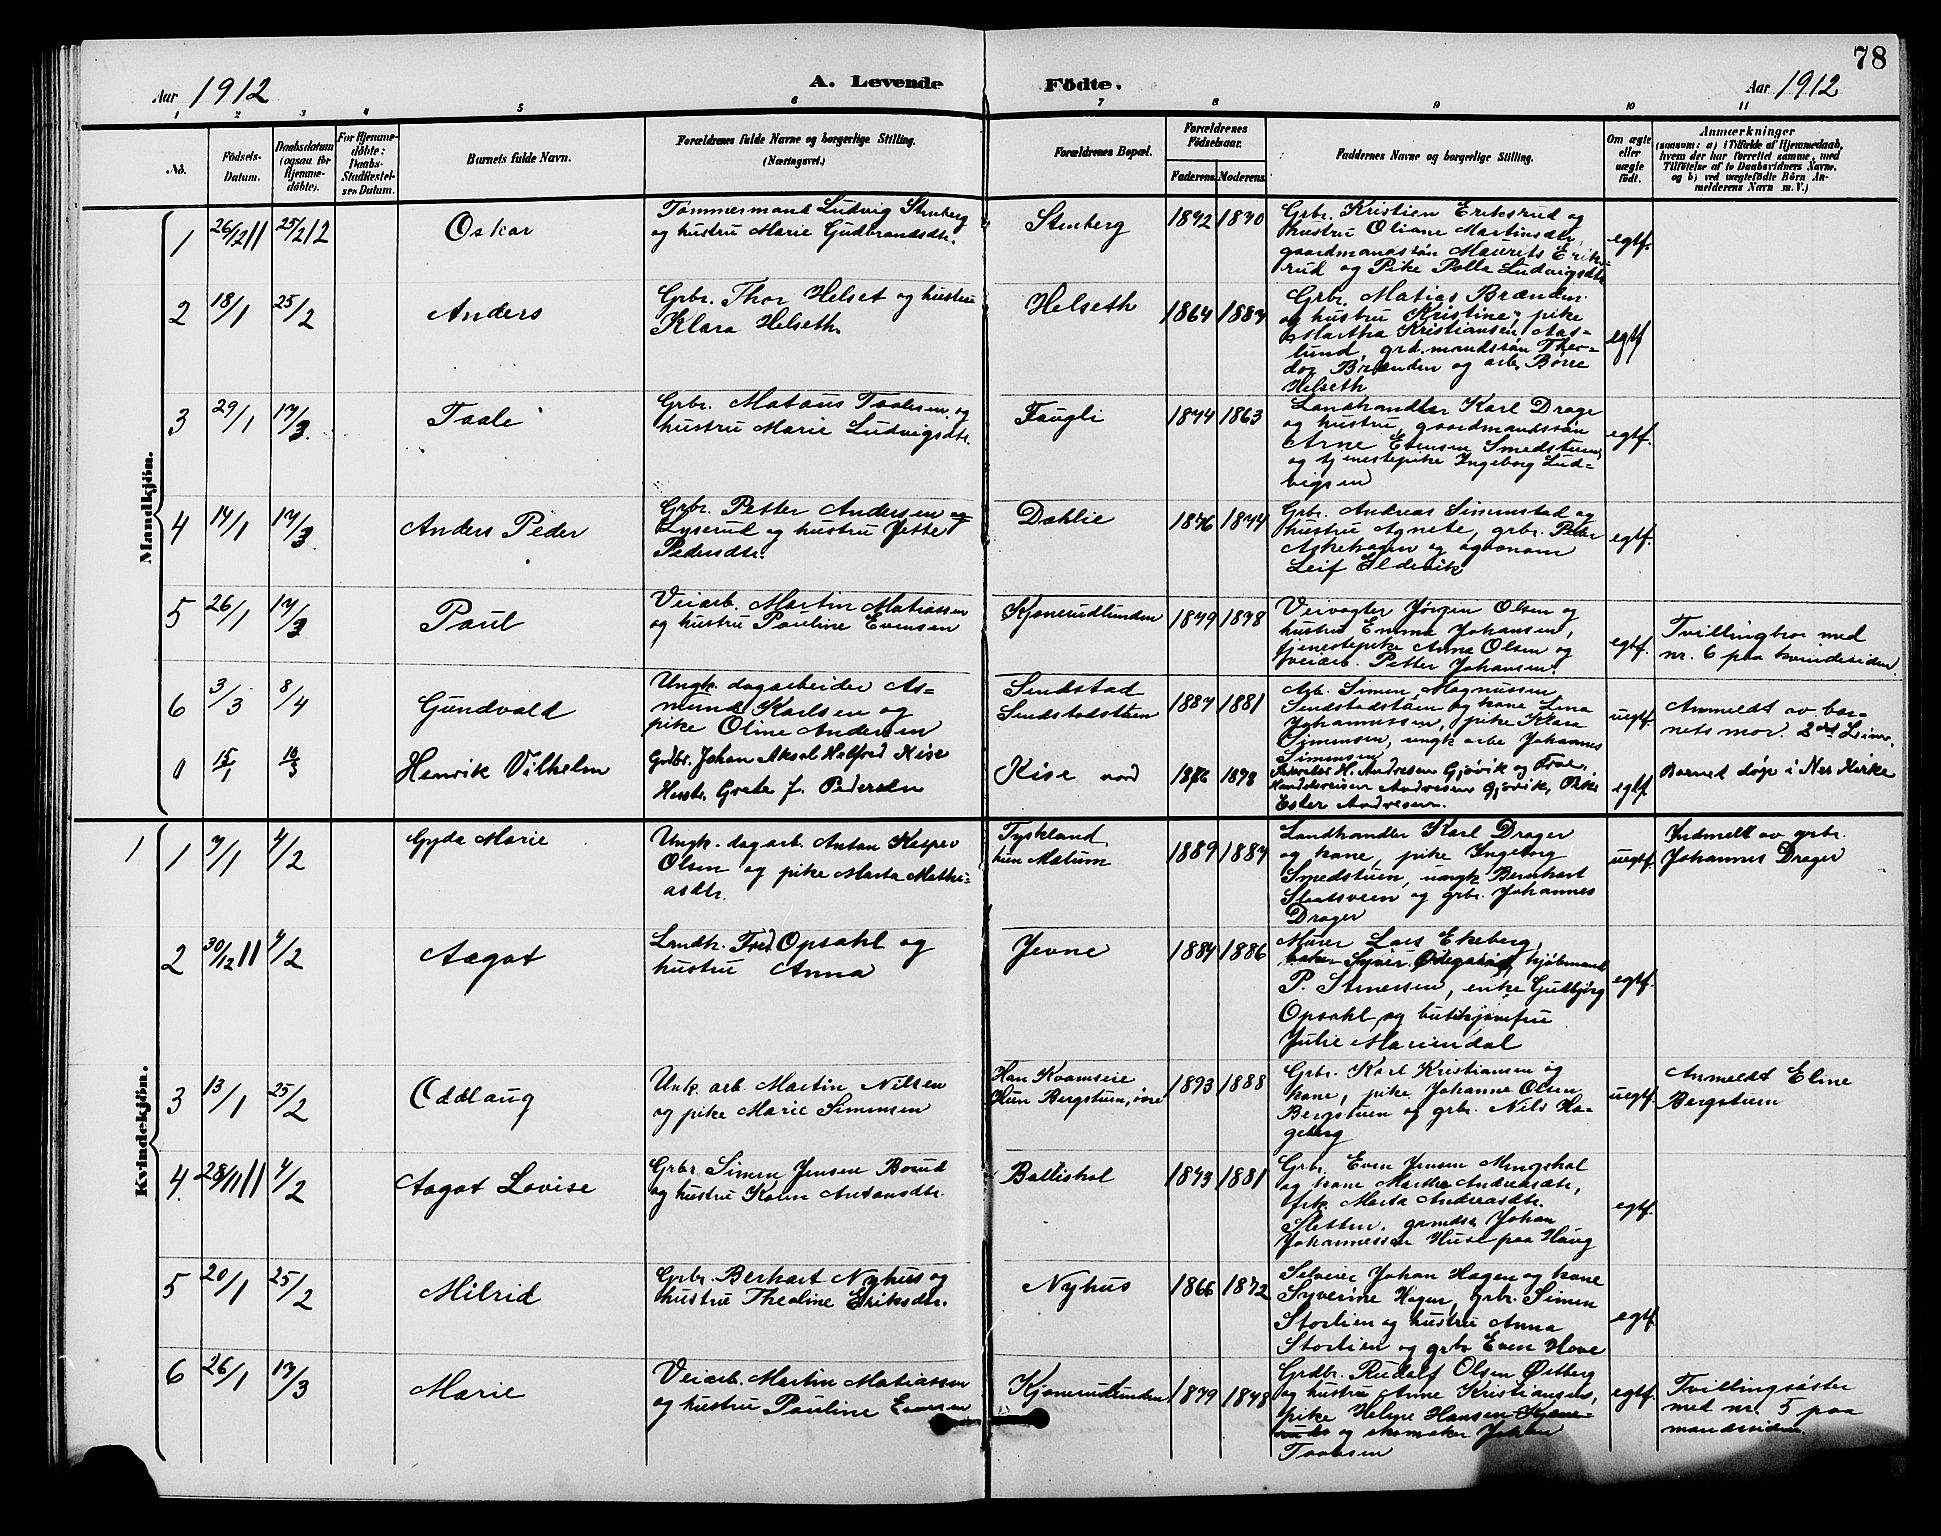 78
Aar 1912
A. Levende Födte.
Aar 1912
1 2 3 4 5 6 7 8 9 10 11
No.
Födsels-Datum.
Daabsdatum (ogsaa for Hjemmedöbte).
For Hjemmedöbte: Daabs-Stadfæstelsens Datum.
Barnets fulde Navn.
Forældrenes fulde Navne og borgerlige Stilling.
(Næringsvei.)
Forældrenes Bopæl.
Forældrenes Födselsaar.
Faderens. Moderens.
Faddernes Navne og borgerlige Stilling.
Om ægte eller uægte födt.
Anmærkninger
(saasom: a) i Tilfælde af Hjemmedaab, hvem der har forrettet samme, med Tilföielse af to Daabsvidners Navne, og b) ved uægtefödte Börn Anmelderens Navn m. V.)
Mandkjön.
1 26/12 11 25/2 12 Oskar
Tømmermand Ludvig Stenberg
og hustru Marie Gudbrandsdtr.
Stenberg 1872 1870
Grbr. Kristien Eriksrud og
hustru Oliane Martinsdtr,
gaardmandssøn Maurits Eriks-
rud og Pike Polla Ludvigsdtr
egtf.
2 18/1 25/2 Anders
Grbr. Thor Helset og hustru
Klara Helseth.
Helseth 1864 1887
Grbr. Matias Brænden
og hustru Kristine, pike
Martha Kristiansen Aas-
lund, grd.mandssøn Theo-
dor Brænden og arb. Børre
Helseth
egtf
3 29/1 17/3 Taale
Grbr. Mataus Taalesen og
hustru Marie Ludvigsdtr.
Faugli 1874 1863
Landhandler Karl Drage
og hustru, gaardmandssøn
Arne Evensen Smedstuen,
og tjenestepike Ingeborg Lud-
vigsen
egtf.
4 14/1 17/3 Anders Peder
Grbr. Petter Andersen
Lyserud og hustru Jette
Pedersdtr.
Dahlie 1876 1874
Grbr. Andreas Simenstad og
hustru Agnete, grbr. Peter
Askehagen og agronom
Leif Eldevik
egtf.
5 26/1 17/3 Paul
Veiarb. Martin Matiassen
og hustru Pauline Evensen
Kjonerudlunden 1879 1878
Veivogter Jørgen Olsen og
hustru Emma Johansen,
tjenestepike Anna Olsen og
veiarb. Petter Johansen.
egtf.
Tvillingbror med
nr. 6 paa kvindesiden
6 3/3 8/4 Gundvald
Ungk. dagarbeider As-
mund Karlsen og
pike Oline Andersen
Sendstad
Sendstadstuen 1887 1881
Arb. Simen Magnussen
Sendstadstuen og kone Lina
Johannessen, pike Klara
Simensen, ungk. arbr Johannes
Simensen
uegtf.
Anmeldt av bar-
nets mor.
15/1 10/3 Henrik Vilhelm
Grdbr. Johan Aksel Halfred Kise
Hustr. Grete J. Pedersen
Kise nord 1876 1878
H. Andresen Gjøvik og Frue,
Handelsreisen Andresen Gjøvik, Pike
Ester Andresen.
egtf.
Barnet døpt i Nes Kirke
Kvindekjön.
1 1 7/1 4/2 Gyda Marie
Ungk. dagarb. Anton Kasper
Olsen og pike Marta Mathi-
asdtr.
Tyskland
hun Malum 1889 1887
Landhandler Karl Drager
og kone, pike Ingeborg
Smedstuen, ungk Bernhart
Slaatsveen og grbr. Johannes
Drager
uegtf.
Indmeldt av grbr.
Johannes Drager
2 30/12 11 4/2 Aagot
Landh. Fred. Opsahl og
hustru Anna
Jevne 1884 1886
Murer Lars Ekeberg,
baker Syver Ødegaard, kjøbmand
P. Stenersen, enke Gulbjørg
Opsahl og butikjomfru
Julie Mariendal
egtf.
3 13/1 25/2 Oddlaug
Unk. arb. Martin Nilsen
og pike Marie Simensen
Han Kvamseie
Hun Bergstuen, øvre 1893 1888
Grbr. Karl Kristiansen og
kone, pike Johanne Olsen
Bergstuen og grbr. Nils Ha-
geberg
uegtf.
Anmeldt Eline
Bergstuen
4. 28/11 11 4/2 Aagot Lovise
Grbr. Simen Jensen Borud
og hustru Karen Antonsdtr.
Ballishol 1873 1881
Grbr. Even Jensen Mengshol
og kone Marthe Andreasdtr,
frk. Marta Andreasdtr.
Sletten, grmdss. Johan
Johannessen Huse paa Haug
egtf.
5 20/1 25/2 Milrid
Grbr. Berhart Nyhus og
hustru Theoline Eriksdtr.
Nyhus 1866 1872
Selveier Johan Hagen og kone
Syverine Hagen, grbr. Simen
Storlien og hustru Anna
Storlien og grbr Even Hove
egtf.
6 26/1 17/3 Marie
Veiarb. Martin Matiassen
og hustru Pauline Evensen
Kjonerudlunden 1879 1878
Grdbr. Rudolf Olsen Østberg
og hustru Anne Kristiansen,
pike Helene Hansen
og skomaker Johan
Taalesen
egtf.
Tvillingsøster
med nr. 5 paa
mandssiden.